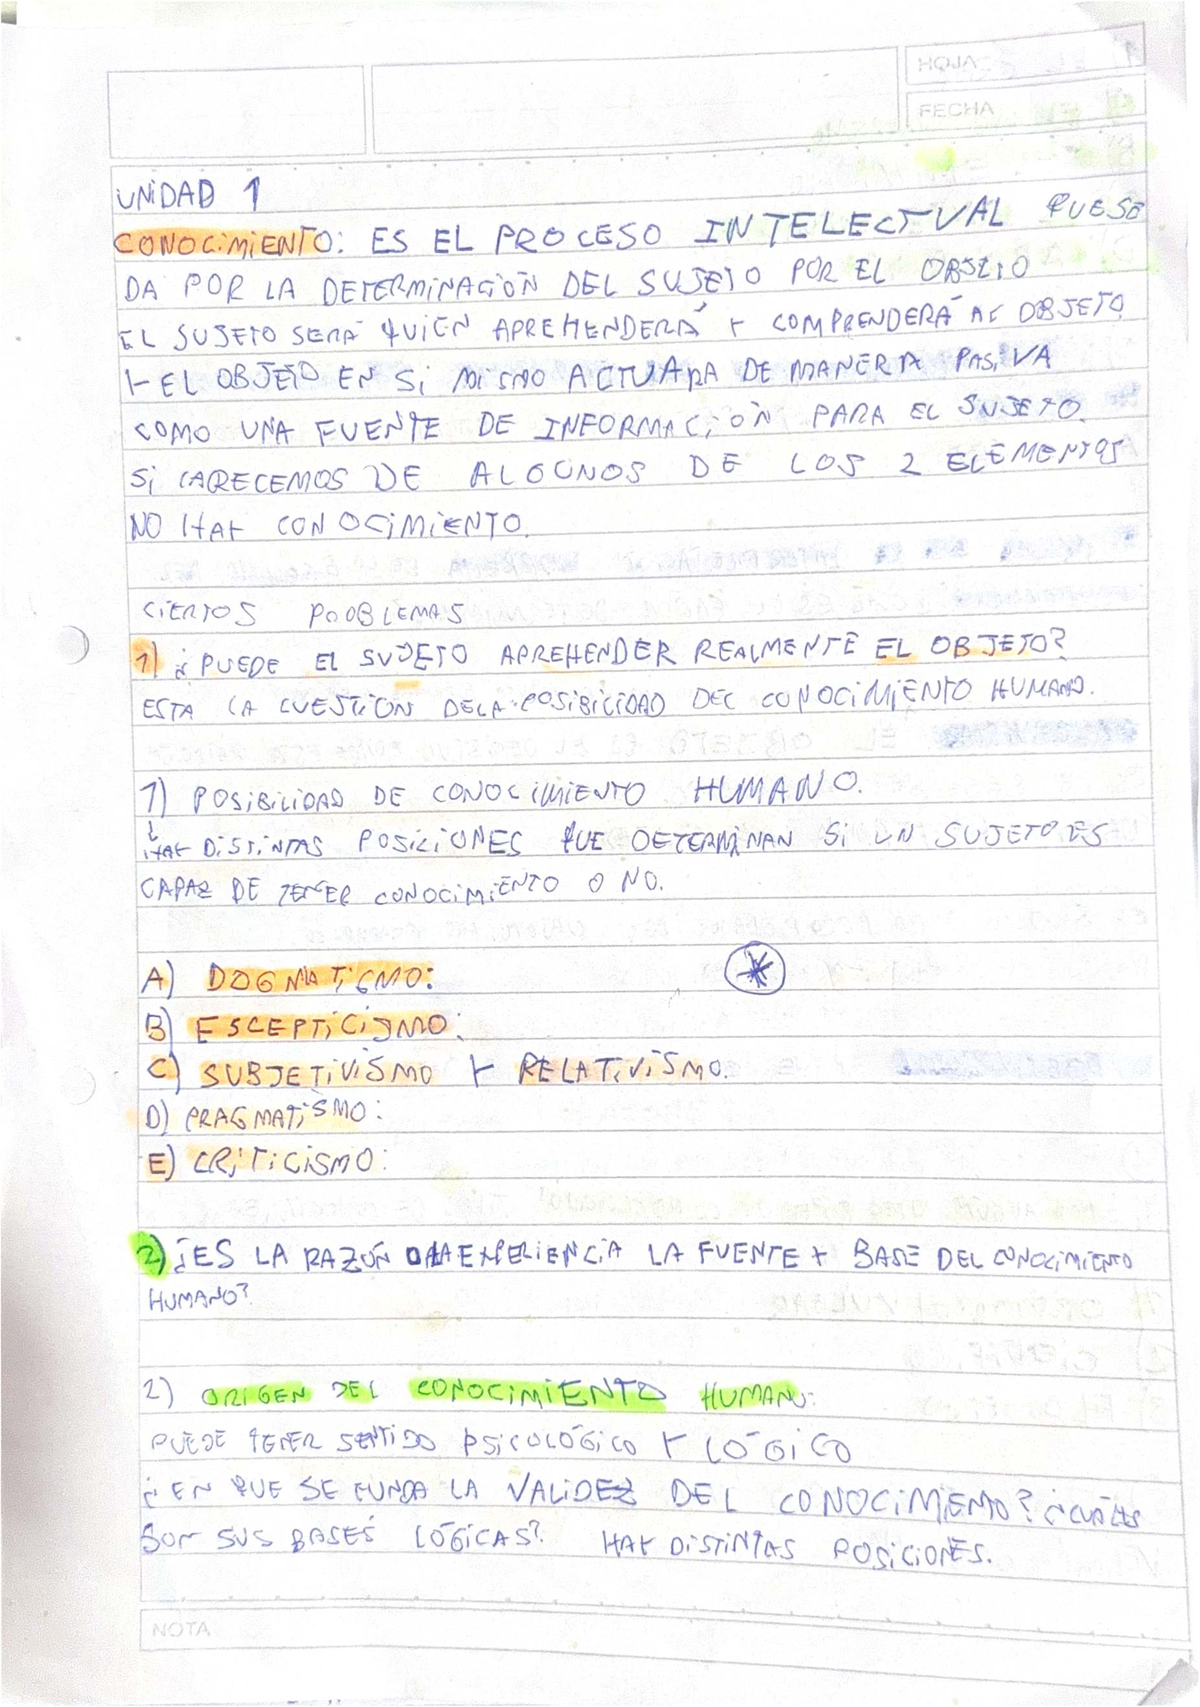 HOJA
FECHA
UNIDAD 1
CONOCIMIENTO: ES EL PROCESO INTELECTUAL QUE SE
DA POR LA DETERMINACIÓN DEL SUJETO POR EL OBJETO
EL SUJETO SERÁ QUIEN APREHENDERÁ Y COMPRENDERÁ AL OBJETO
Y EL OBJETO EN SI MISMO ACTUARA DE MANERA PASIVA
COMO UNA FUENTE DE INFORMACIÓN PARA EL SUJETO.
SI CARECEMOS DE ALGUNOS DE LOS 2 ELEMENTOS
NO HAY CONOCIMIENTO.
CIERTOS PROBLEMAS
1) ¿PUEDE EL SUJETO APREHENDER REALMENTE EL OBJETO?
ESTA LA CUESTIÓN DE LA POSIBILIDAD DEL CONOCIMIENTO HUMANO.
1) POSIBILIDAD DE CONOCIMIENTO HUMANO.
↓
HAY DISTINTAS POSICIONES QUE DETERMINAN SI UN SUJETO ES
CAPAZ DE TENER CONOCIMIENTO O NO.
A) DOGMATISMO: *
B) ESCEPTICISMO:
C) SUBJETIVISMO Y RELATIVISMO.
D) PRAGMATISMO:
E) CRITICISMO:
2) ¿ES LA RAZÓN O LA EXPERIENCIA LA FUENTE Y BASE DEL CONOCIMIENTO
HUMANO?
2) ORIGEN DEL CONOCIMIENTO HUMANO:
PUEDE TENER SENTIDO PSICOLÓGICO Y LÓGICO
¿EN QUE SE FUNDA LA VALIDEZ DEL CONOCIMIENTO? ¿CUÁLES
SON SUS BASES LÓGICAS? HAY DISTINTAS POSICIONES.
NOTA